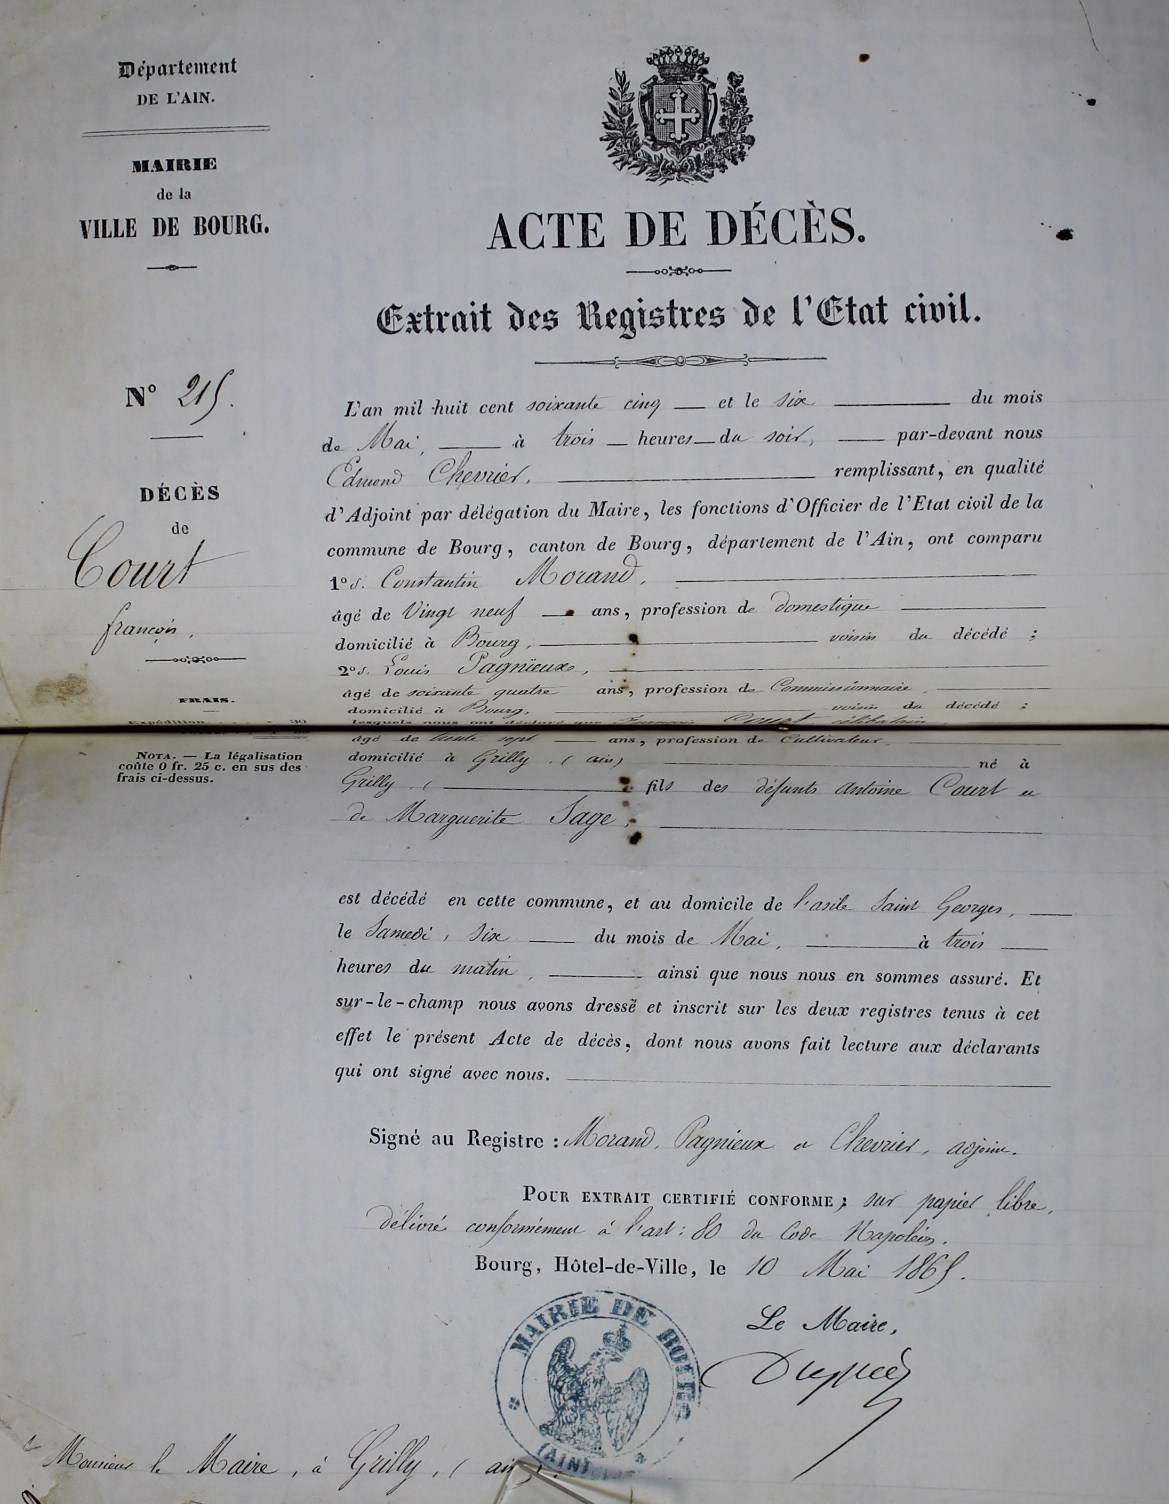 Département
DE L'AIN.
MAIRIE
de la
VILLE DE BOURG.
ACTE DE DÉCÈS.
Extrait des Registres de l'Etat civil.
N° 215.
DÉCÈS
de
Court
françois.
FRAIS.
Expédition 30
NOTA. — La légalisation
coûte 0 fr. 25 c. en sus des
frais ci-dessus.
L'an mil huit cent soixante cinq et le six du mois
de Mai, à trois heures du soir, par-devant nous
Edmond Chevrier, remplissant, en qualité
d'Adjoint par délégation du Maire, les fonctions d'Officier de l'Etat civil de la
commune de Bourg, canton de Bourg, département de l'Ain, ont comparu
1° S. Constantin Morand,
âgé de Vingt neuf ans, profession de domestique
domicilié à Bourg, voisin du décédé ;
2° S. Louis Pagnieux,
âgé de soixante quatre ans, profession de Commissionnaire
domicilié à Bourg, voisin du décédé ;
lesquels nous ont déclaré que François Court célibataire
âgé de trente sept ans, profession de Cultivateur,
domicilié à Grilly. (ain) né à
Grilly. ( fils des défunts Antoine Court et
de Marguerite Sage,
est décédé en cette commune, et au domicile de l'asile Saint Georges,
le Samedi, six du mois de Mai, à trois
heures du matin, ainsi que nous nous en sommes assuré. Et
sur-le-champ nous avons dressé et inscrit sur les deux registres tenus à cet
effet le présent Acte de décès, dont nous avons fait lecture aux déclarants
qui ont signé avec nous.
Signé au Registre : Morand, Pagnieux et Chevrier, adjoint.
POUR EXTRAIT CERTIFIÉ CONFORME ; sur papier libre,
délivré conformément à l'art : 80 du Code Napoléon.
Bourg, Hôtel-de-Ville, le 10 Mai 1865.
Le Maire,
MAIRIE DE BOURG
(AIN)
Monsieur le Maire, à Grilly, (ain).